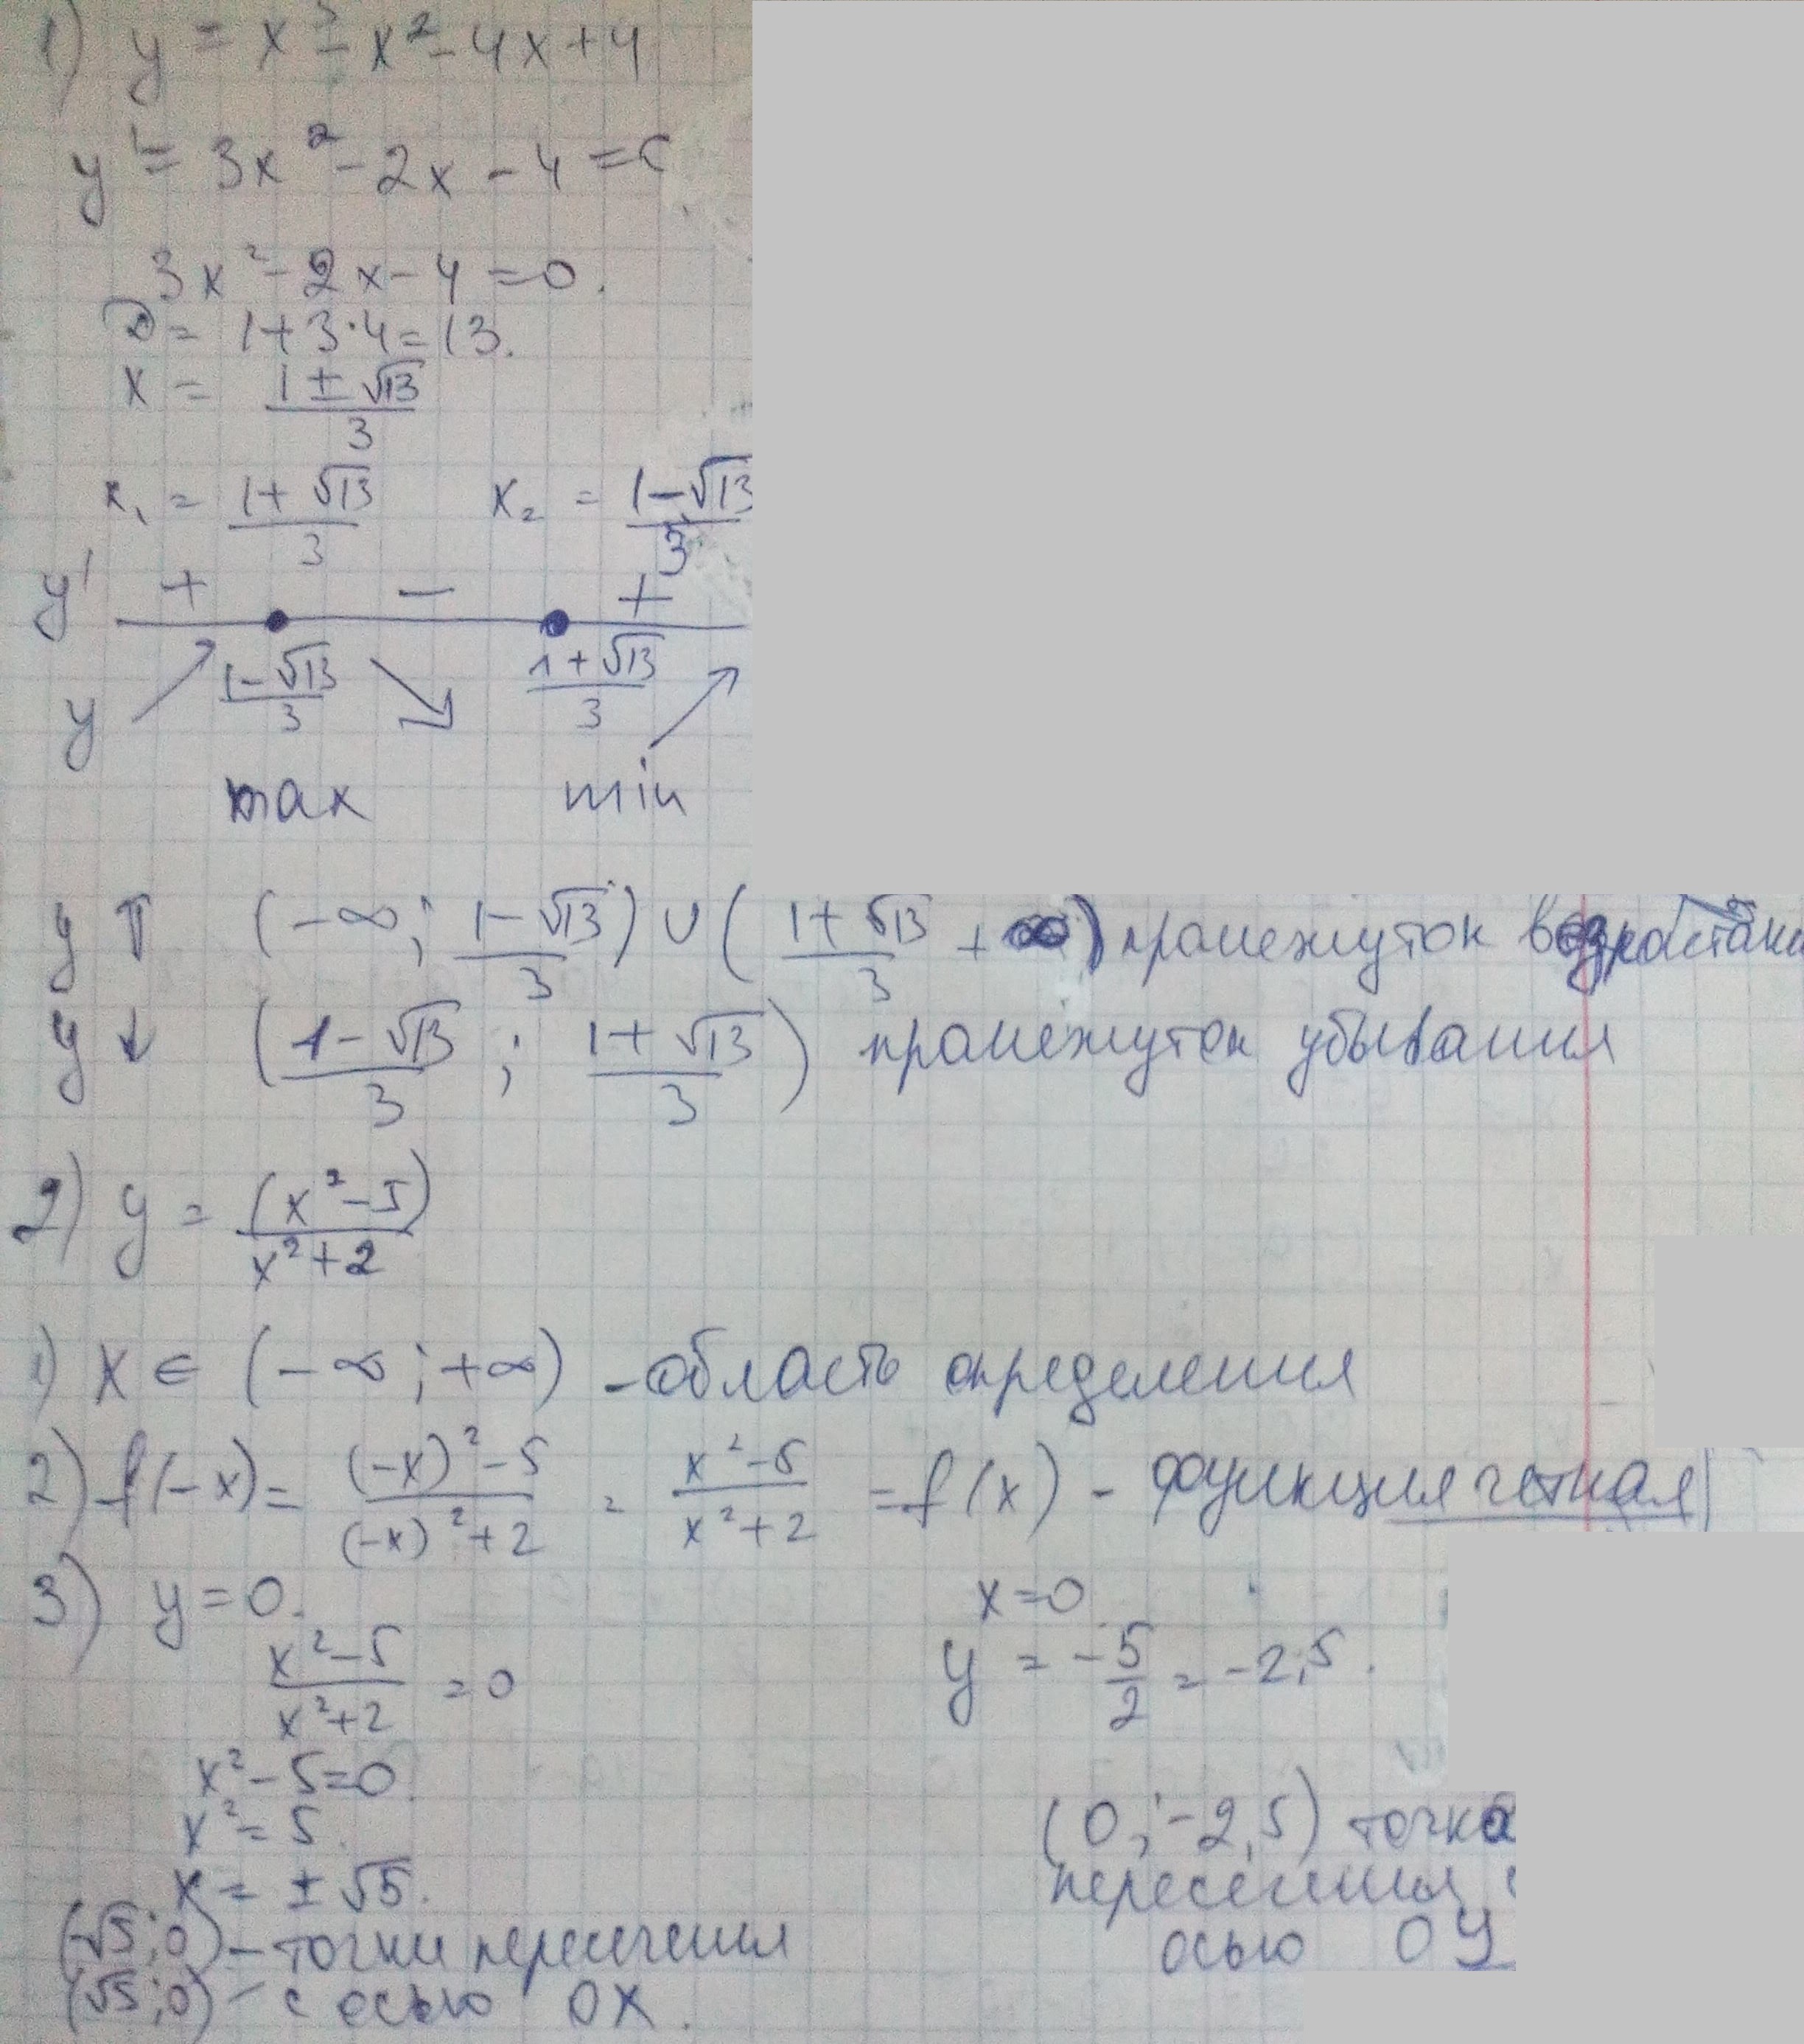 1) y = x³ - x² - 4x + 4
y' = 3x² - 2x - 4 = 0
3x² - 2x - 4 = 0.
D = 1 + 3·4 = 13.
x = (1 ± √13)/3
x₁ = (1 + √13)/3 x₂ = (1 - √13)/3
y' + - +
(1 - √13)/3 (1 + √13)/3
y
max min
y ↑ (-∞; (1 - √13)/3) ∪ ((1 + √13)/3 + ∞) промежуток возрастани
y ↓ ((1 - √13)/3 ; (1 + √13)/3) промежуток убывания
2) y = (x² - 5)/(x² + 2)
1) x ∈ (-∞; +∞) - область определения
2) f(-x) = ((-x)² - 5)/((-x)² + 2) = (x² - 5)/(x² + 2) = f(x) - функция четная
3) y = 0. x = 0
(x² - 5)/(x² + 2) = 0 y = -5/2 = -2,5.
x² - 5 = 0.
x² = 5. (0; -2,5) точка
x = ± √5. пересечения с
(-√5; 0) - точки пересечения осью ОУ
(√5; 0) - с осью ОХ.